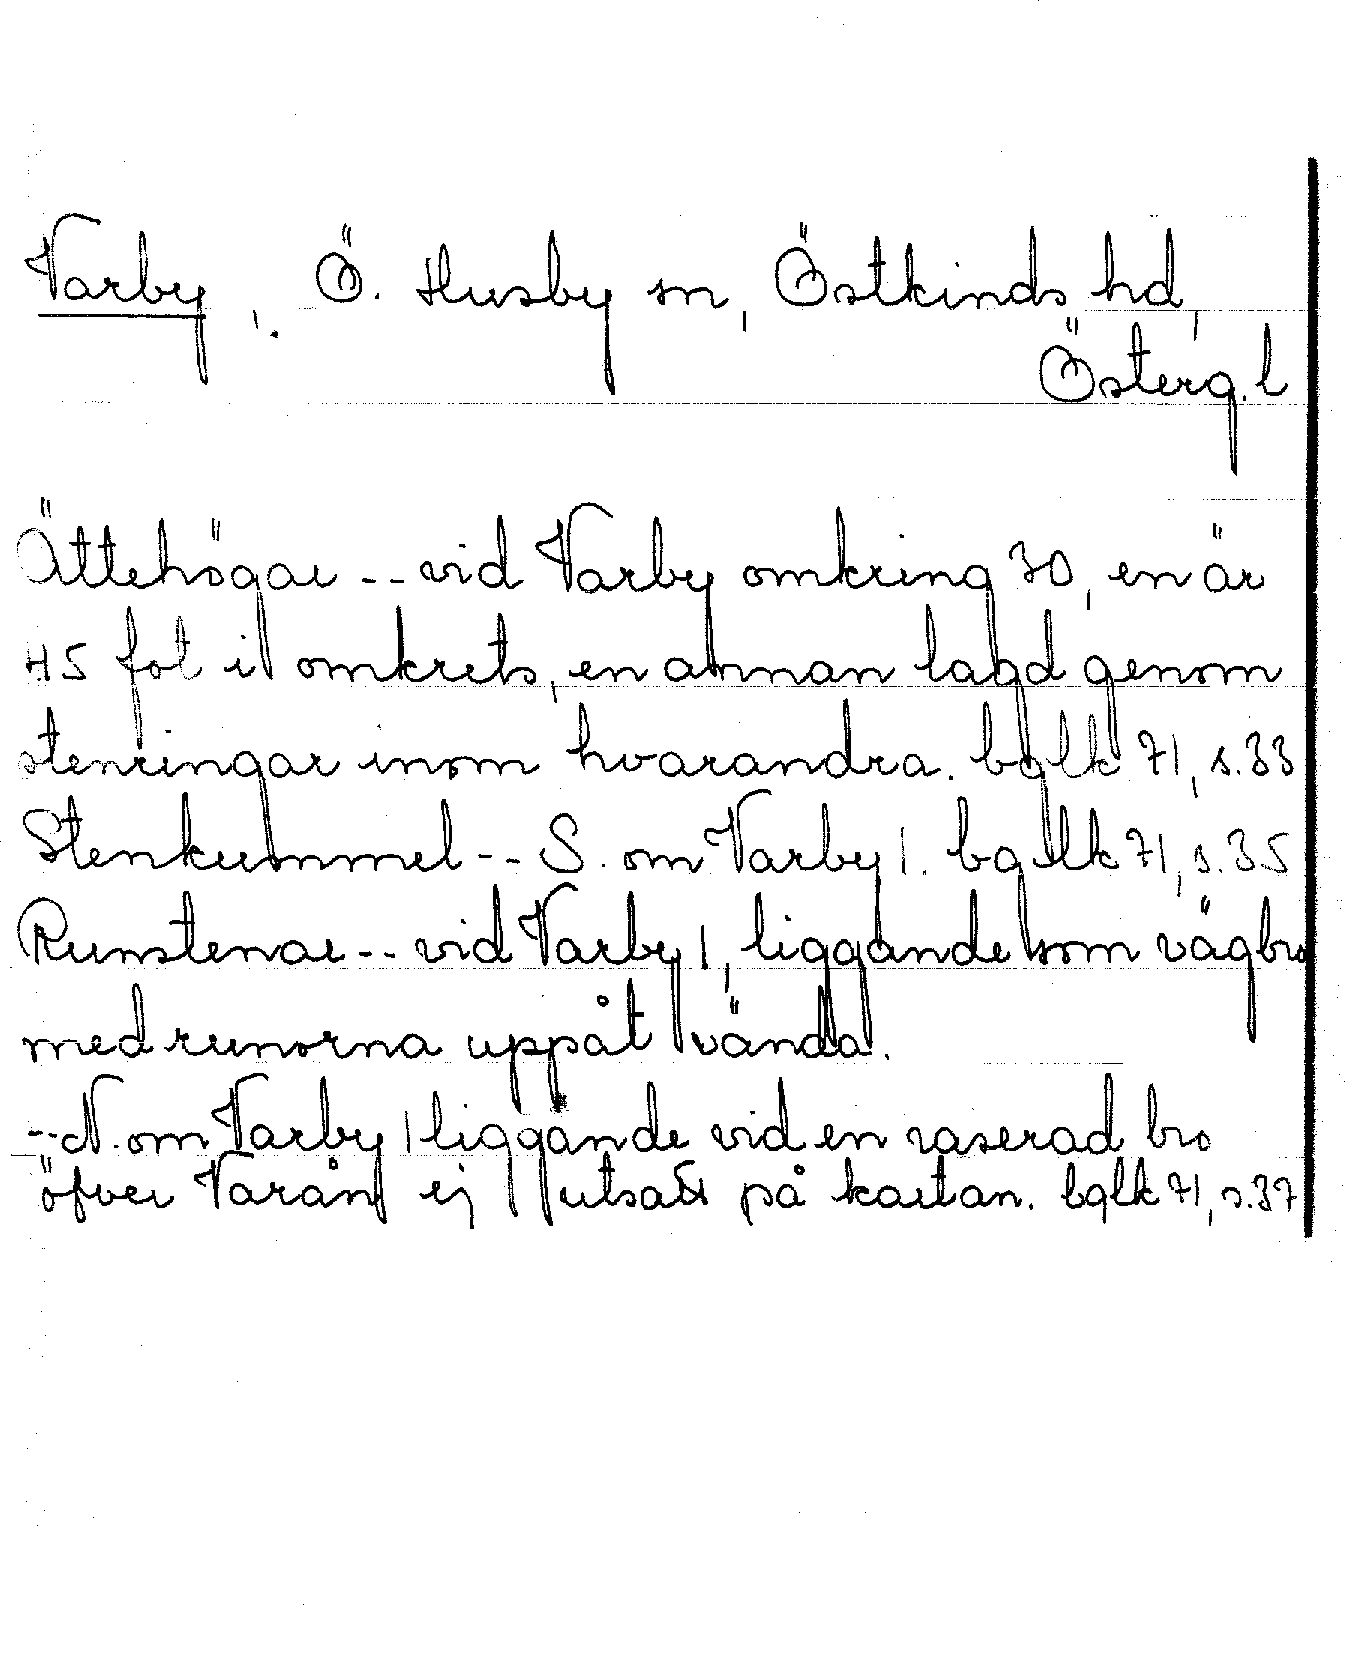 Varby, Ö. Husby sn, Östkinds hd,
Österg. l
Ättehögar -- vid Varby omkring 30, en är
45 fot i omkrets, en annan lagd genom
stenringar inom hvarandra. bglk 71, s. 33
Stenkummel -- S. om Varby 1. bglk 71, s. 35
Runstenar -- vid Varby 1, liggande som vägbro
med runorna uppåt vända.
-- N. om Varby 1 liggande vid en raserad bro
öfver Varån ej utsatt på kartan. bglk 71, s. 37